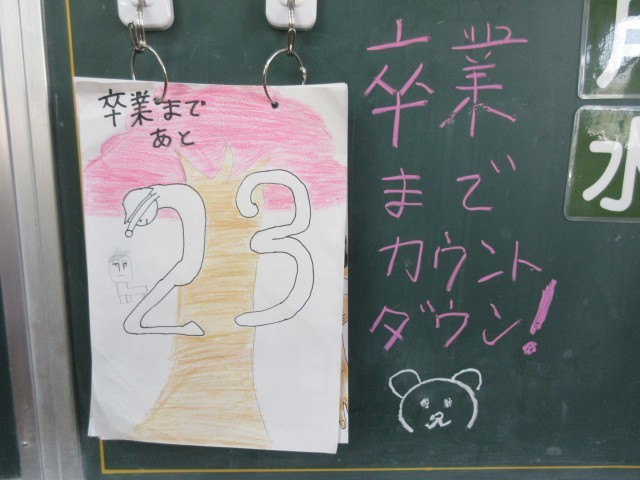 卒業まで
あと
23
卒業
まで
カウント
ダウン!
水